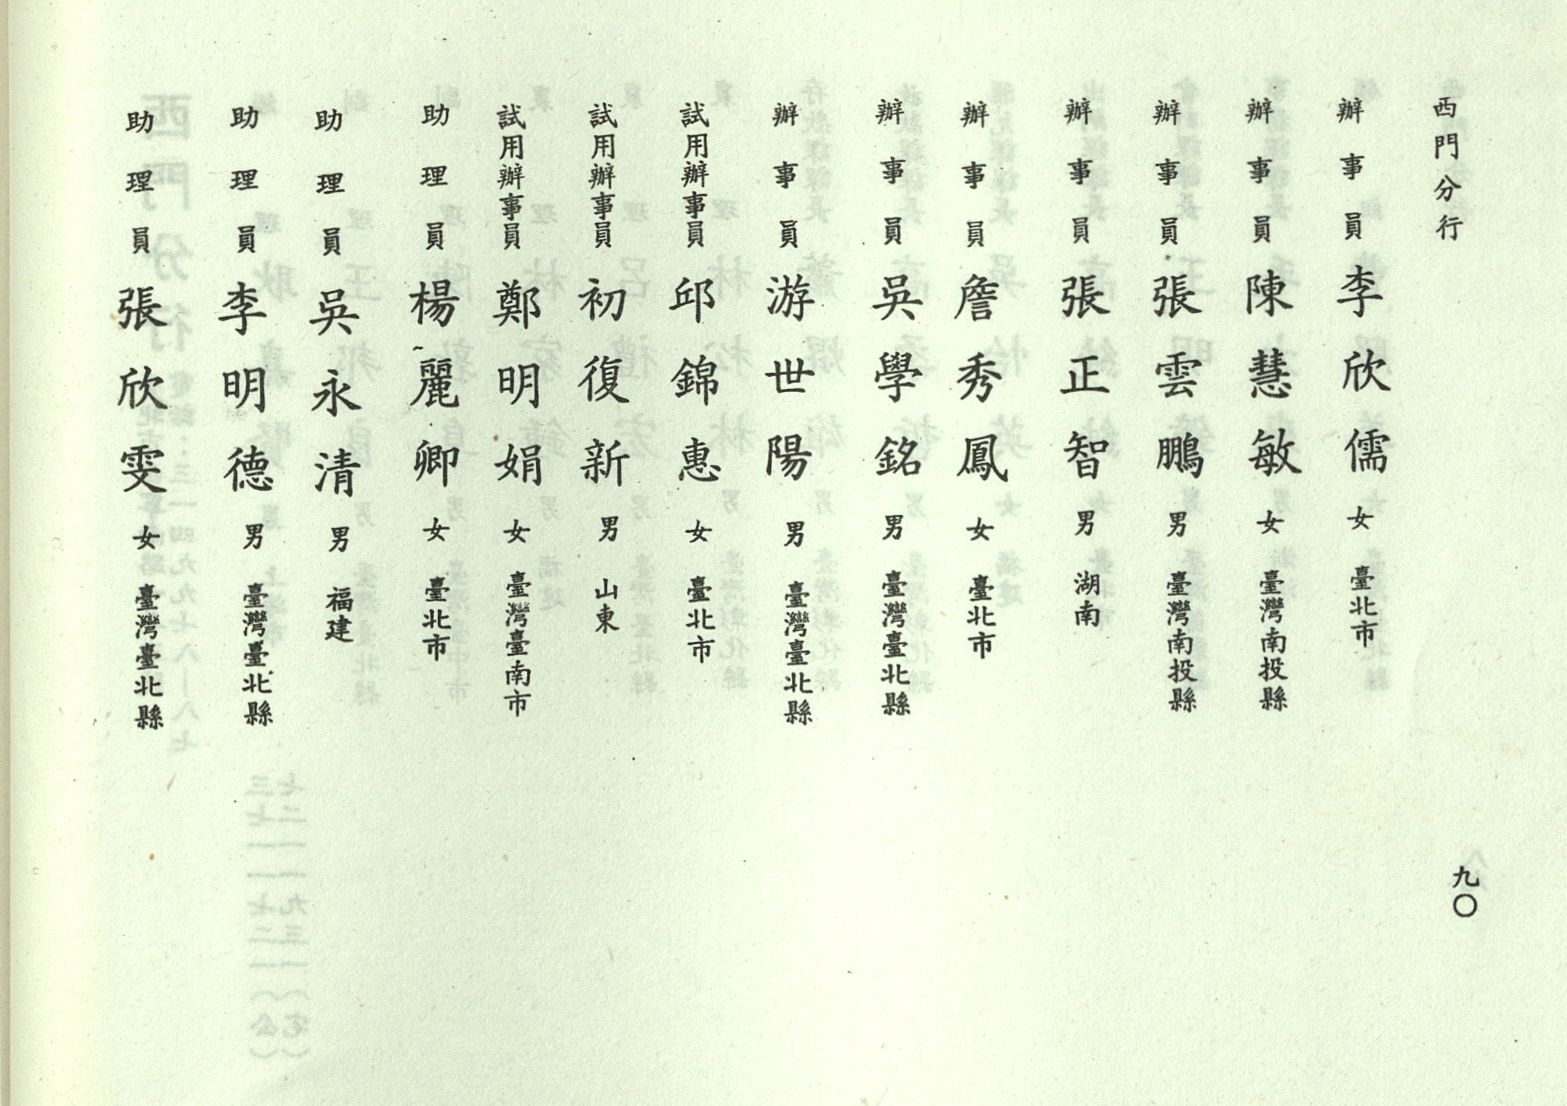 西門分行
辦事員 李欣儒 女 臺北市
辦事員 陳慧敏 女 臺灣南投縣
辦事員 張雲鵬 男 臺灣南投縣
辦事員 張正智 男 湖南
辦事員 詹秀鳳 女 臺北市
辦事員 吳學銘 男 臺灣臺北縣
辦事員 游世陽 男 臺灣臺北縣
試用辦事員 邱錦惠 女 臺北市
試用辦事員 初復新 男 山東
試用辦事員 鄭明娟 女 臺灣臺南市
助理員 楊麗卿 女 臺北市
助理員 吳永清 男 福建
助理員 李明德 男 臺灣臺北縣
助理員 張欣雯 女 臺灣臺北縣
九〇